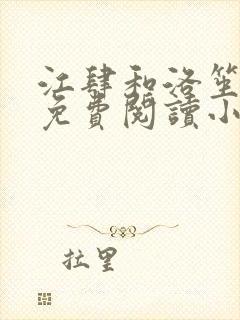 江肆和洛笙
免費閱讀小
拉里